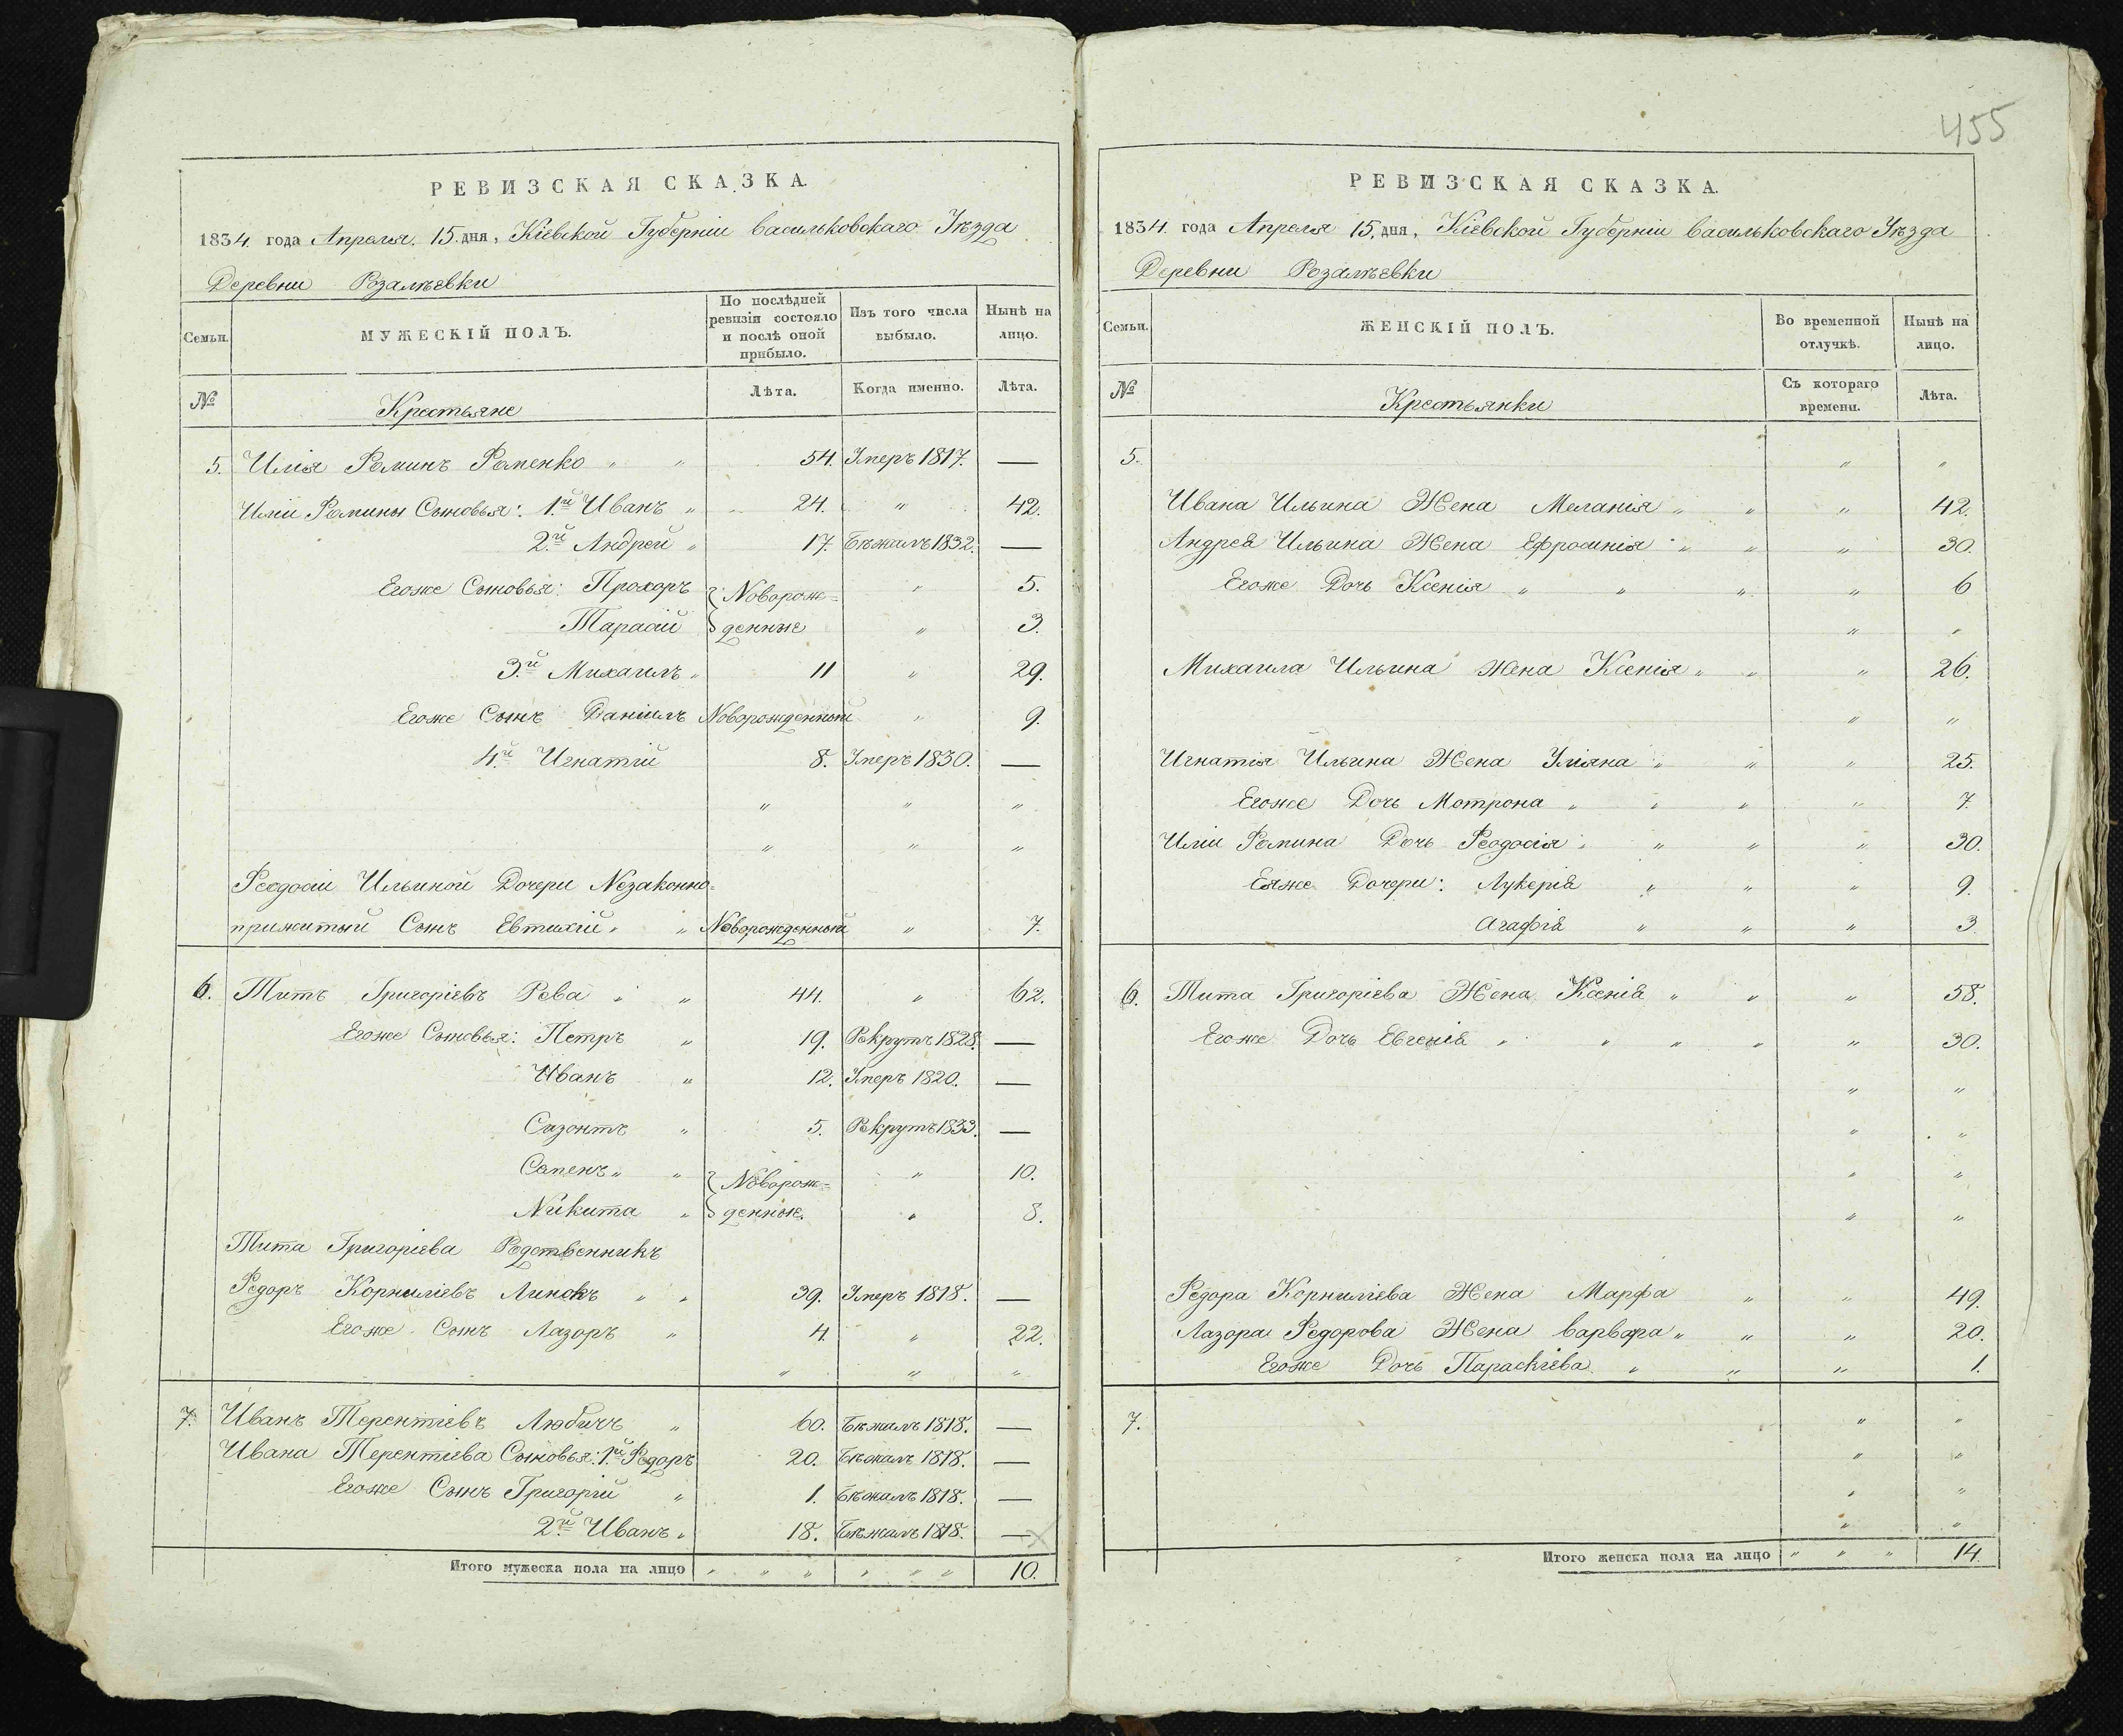 455
РЕВИЗСКАЯ СКАЗКА.
1834 года Апреля 15 дня, Кіевской Губерніи Васильковскаго Уѣзда
Деревни Розалѣевки
Семьи. МУЖЕСКІЙ ПОЛЪ. По послѣдней ревизіи состояло и послѣ оной прибыло. Изъ того числа выбыло. Нынѣ на лицо.
№ Крестьяне Лѣта. Когда именно. Лѣта.
5. Илія Фоминъ Фоменко " " 54. Умеръ 1817. —
Иліи Фомины Сыновья: 1й Иванъ " 24. " 42.
2й Андрей " 17. Бѣжалъ 1832. —
Егоже Сыновья: Прохоръ Новорож= " 5.
Тарасій денные " 3.
3й Михаилъ " 11 " 29.
Егоже Сынъ Даніилъ Новорожденный " 9.
4й Игнатій 8. Умеръ 1830. —
" " "
" " "
Феодосіи Ильиной Дочери Незаконно=
прижитый Сынъ Евтихій " " Новорожденный " 7.
6. Титъ Григоріевъ Рева " " 44. " 62.
Егоже Сыновья: Петръ " 19. Рекрутъ 1828. —
Иванъ " 12. Умеръ 1820. —
Созонтъ " 5. Рекрутъ 1833. —
Семенъ " " Новорож= " 10.
Никита " денные. " 8.
Тита Григоріева Родственникъ
Федоръ Корниліевъ Линокъ " " 39. Умеръ 1818. —
Егоже Сынъ Лазоръ " 4. " 22.
" " "
7. Иванъ Терентіевъ Любичъ " 60. Бѣжалъ 1818. —
Ивана Терентіева Сыновья: 1й Федоръ 20. Бѣжалъ 1818. —
Егоже Сынъ Григорій " 1. Бѣжалъ 1818. —
2й Иванъ " 18. Бѣжалъ 1818. —
Итого мужеска пола на лицо " " " " " " 10.
РЕВИЗСКАЯ СКАЗКА.
1834 года Апреля 15 дня, Кіевской Губерніи Васильковскаго Уѣзда
Деревни Розалѣевки
Семьи. ЖЕНСКІЙ ПОЛЪ. Во временной отлучкѣ. Нынѣ на лицо.
№ Крестьянки Съ котораго времени. Лѣта.
5. " "
Ивана Ильина Жена Меланія " " " 42.
Андрея Ильина Жена Ефросинія " " " 30.
Егоже Дочь Ксенія " " " " 6
" "
Михаила Ильина Жена Ксенія " " " 26.
" "
Игнатія Ильина Жена Уліяна " " " 25.
Егоже Дочь Мотрона " " " " 7.
Иліи Фомина Дочь Феодосія " " " " 30.
Еяже Дочери: Лукерія " " " 9.
Агафія " " " 3.
6. Тита Григоріева Жена Ксенія " " " 58.
Егоже Дочь Евгенія " " " " " 30.
" "
" "
" "
" "
Федора Корниліева Жена Марфа " " 49.
Лазора Федорова Жена Варвара " " " 20.
Егоже Дочь Параскіева " " " 1.
7. " "
" "
" "
" "
Итого женска пола на лицо " " " 14.